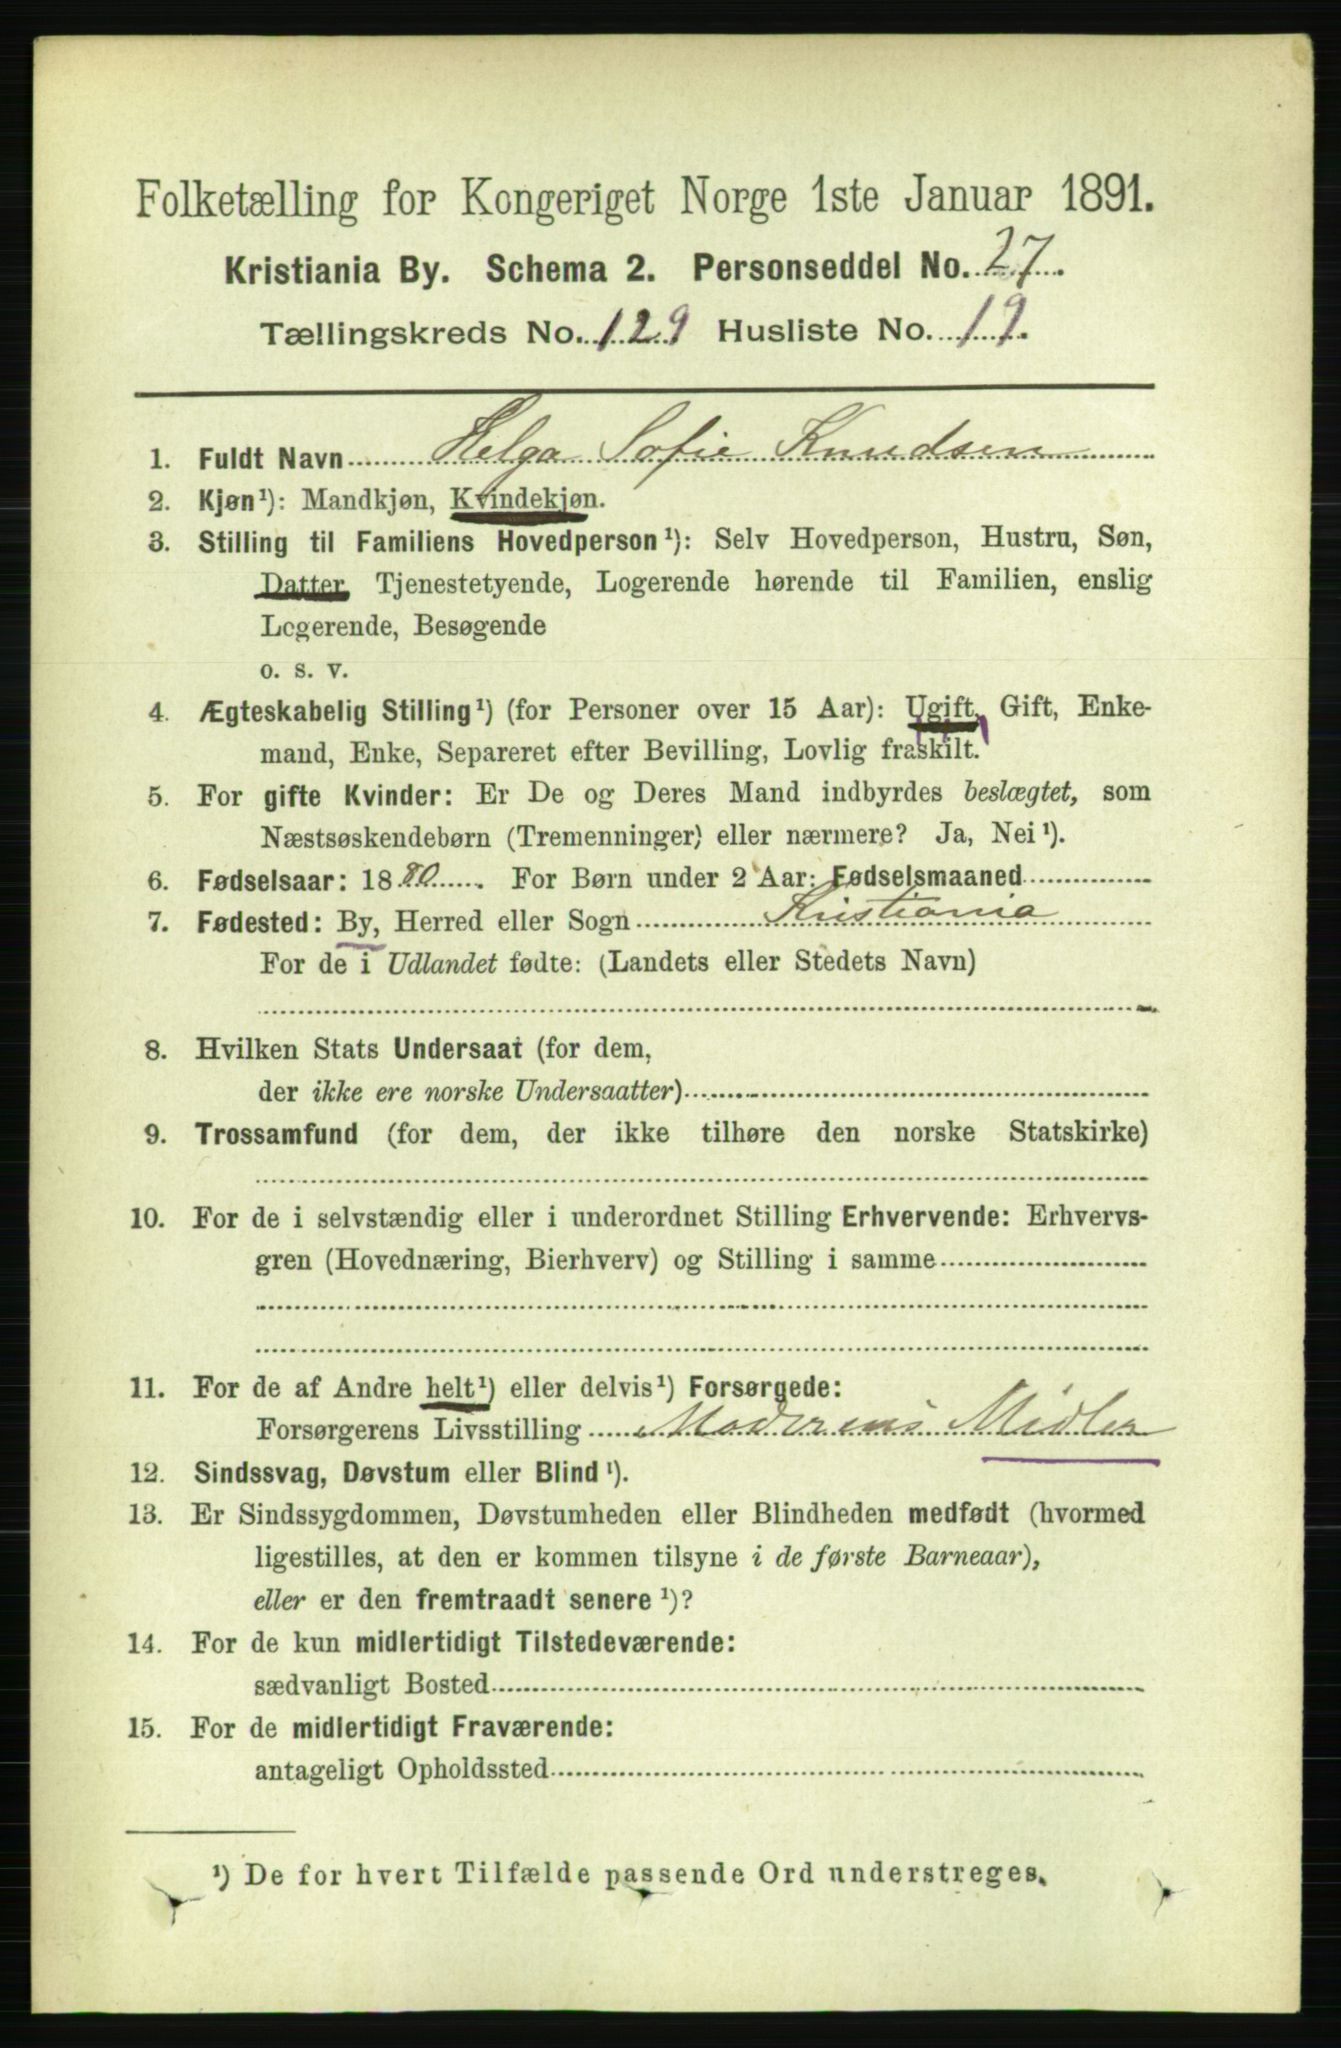 Folketælling for Kongeriget Norge 1ste Januar 1891.
Kristiania By. Schema 2. Personseddel No. 27.
Tællingskreds No. 129 Husliste No. 19.
1. Fuldt Navn Helga Sofie Knudsen
2. Kjøn¹): Mandkjøn, Kvindekjøn.
3. Stilling til Familiens Hovedperson¹): Selv Hovedperson, Hustru, Søn,
Datter, Tjenestetyende, Logerende hørende til Familien, enslig
Logerende, Besøgende
o. s. v.
4. Ægteskabelig Stilling¹) (for Personer over 15 Aar): Ugift, Gift, Enke-
mand, Enke, Separeret efter Bevilling, Lovlig fraskilt.
5. For gifte Kvinder: Er De og Deres Mand indbyrdes beslægtet, som
Næstsøskendebørn (Tremenninger) eller nærmere? Ja, Nei¹).
6. Fødselsaar: 1880. For Børn under 2 Aar: Fødselsmaaned
7. Fødested: By, Herred eller Sogn Kristiania
For de i Udlandet fødte: (Landets eller Stedets Navn)
8. Hvilken Stats Undersaat (for dem,
der ikke ere norske Undersaatter)
9. Trossamfund (for dem, der ikke tilhøre den norske Statskirke)
10. For de i selvstændig eller i underordnet Stilling Erhvervende: Erhvervs-
gren (Hovednæring, Bierhverv) og Stilling i samme
11. For de af Andre helt¹) eller delvis¹) Forsørgede:
Forsørgerens Livsstilling Moderens Midler
12. Sindssvag, Døvstum eller Blind¹).
13. Er Sindssygdommen, Døvstumheden eller Blindheden medfødt (hvormed
ligestilles, at den er kommen tilsyne i de første Barneaar),
eller er den fremtraadt senere¹)?
14. For de kun midlertidigt Tilstedeværende:
sædvanligt Bosted
15. For de midlertidigt Fraværende:
antageligt Opholdssted
¹) De for hvert Tilfælde passende Ord understreges.